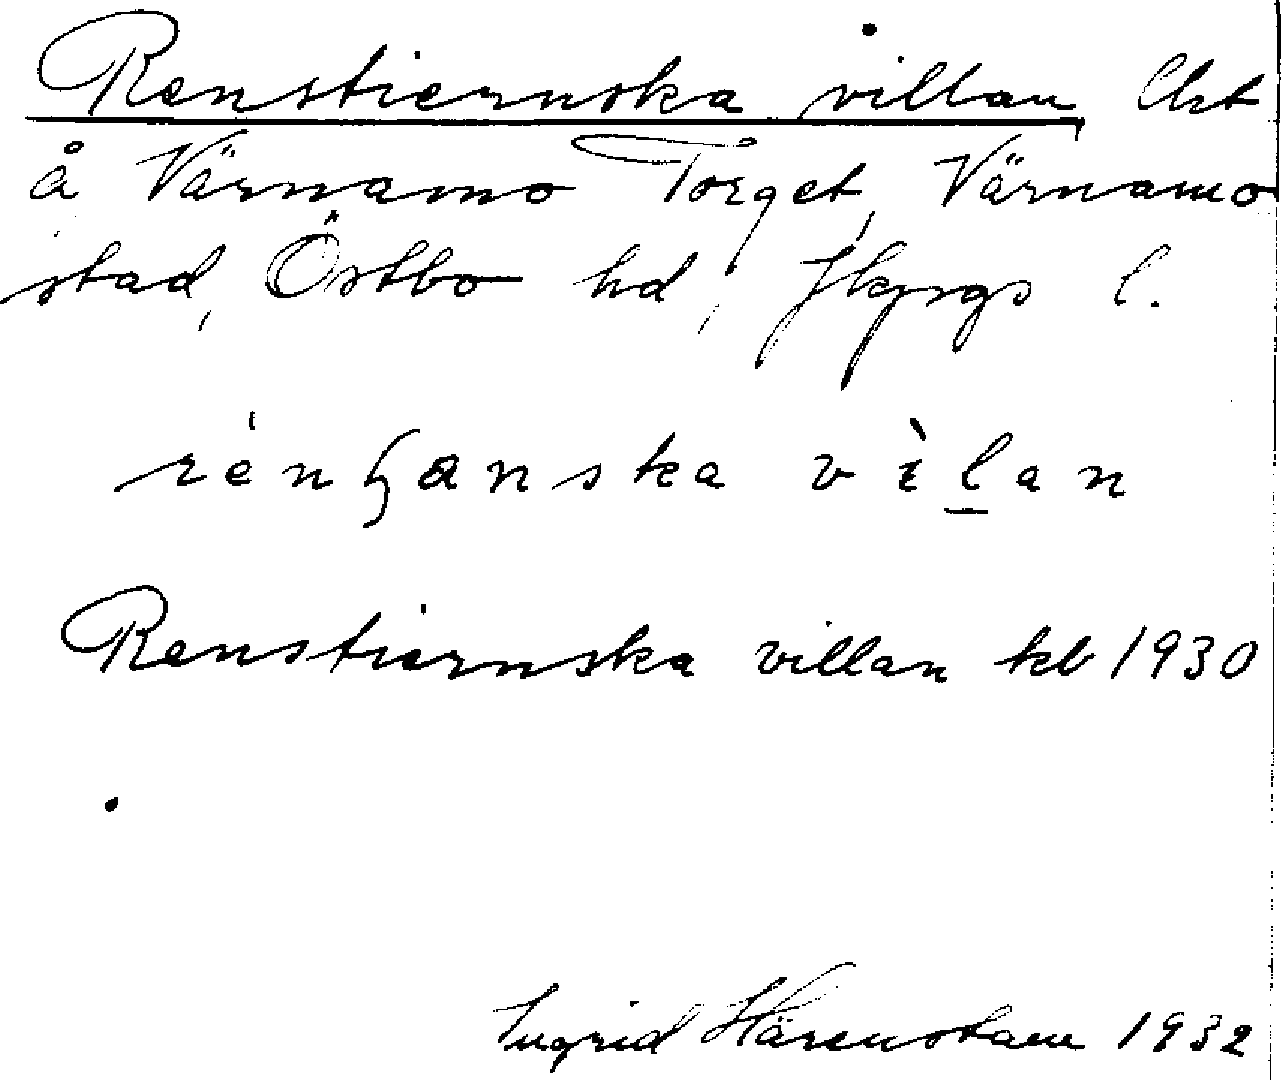 Renstiernska villan lht
å Värnamo Torget, Värnamo
stad, Östbo hd, Jkpgs l.
rénɧanska vìl̠an
Renstiernska villan kb 1930
Ingrid Härenstam 1932